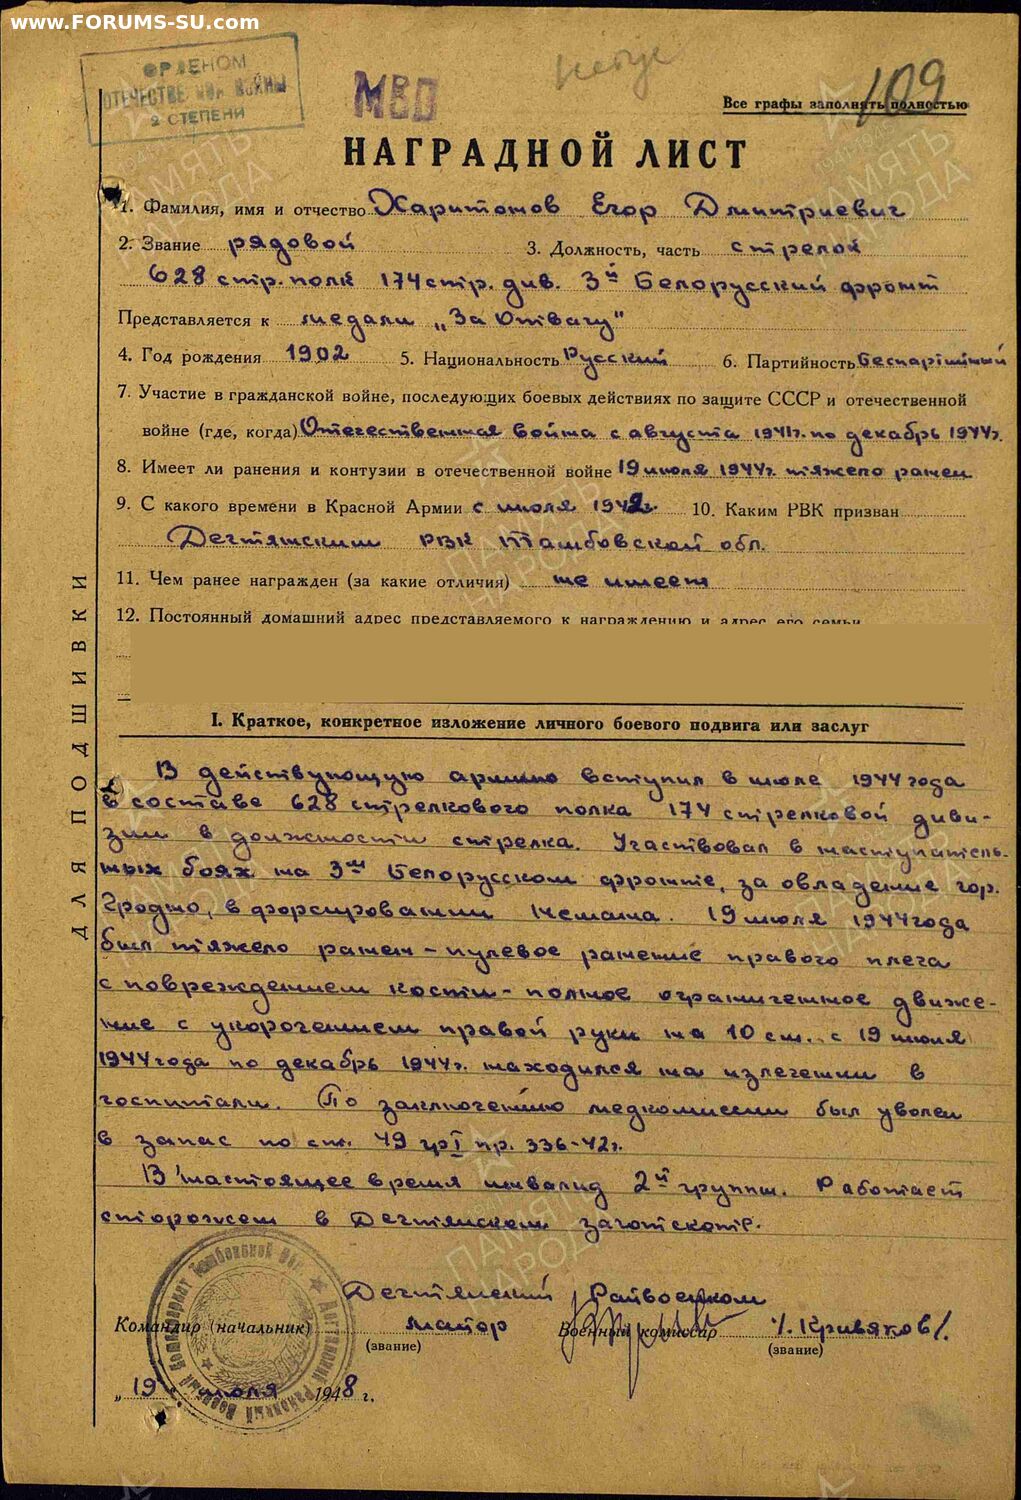 www.FORUMS-SU.com
ОРДЕНОМ
ОТЕЧЕСТВЕННОЙ ВОЙНЫ
2 СТЕПЕНИ
МВО
109
Все графы заполнять полностью
НАГРАДНОЙ ЛИСТ
1. Фамилия, имя и отчество Харитонов Егор Дмитриевич
2. Звание рядовой 3. Должность, часть стрелок
628 стр. полк 174 стр. див. 3й Белорусский фронт
Представляется к медали „За Отвагу"
4. Год рождения 1902 5. Национальность Русский 6. Партийность Беспартийный
7. Участие в гражданской войне, последующих боевых действиях по защите СССР и отечественной
войне (где, когда) Отечественная война с августа 1941г. по декабрь 1944г.
8. Имеет ли ранения и контузии в отечественной войне 19 июля 1944г. тяжело ранен
9. С какого времени в Красной Армии с июля 1942г. 10. Каким РВК призван
Дегтянским РВК Тамбовской обл.
11. Чем ранее награжден (за какие отличия) не имеет
12. Постоянный домашний адрес представляемого к награждению и адрес его семьи
I. Краткое, конкретное изложение личного боевого подвига или заслуг
В действующую армию вступил в июле 1944 года
в составе 628 стрелкового полка 174 стрелковой диви-
зии в должности стрелка. Участвовал в наступатель-
ных боях на 3м Белорусском фронте, за овладение гор.
Гродно, в форсировании Немана. 19 июля 1944 года
был тяжело ранен – пулевое ранение правого плеча
с повреждением кости – полное ограниченное движе-
ние с укорочением правой руки на 10 см. с 19 июля
1944 года по декабрь 1944г. находился на излечении в
госпитали. По заключению медкомиссии был уволен
в запас по ст. 49 гр I пр. 336-42г.
В настоящее время инвалид 2й группы. Работает
сторожем в Дегтянском заготскоте.
Дегтянский Райвоенком
Командир (начальник) майор Военный комиссар /. Кривяков/.
(звание) (звание)
„19" июля 1948 г.
ДЛЯ ПОДШИВКИ
ПАМЯТЬ НАРОДА